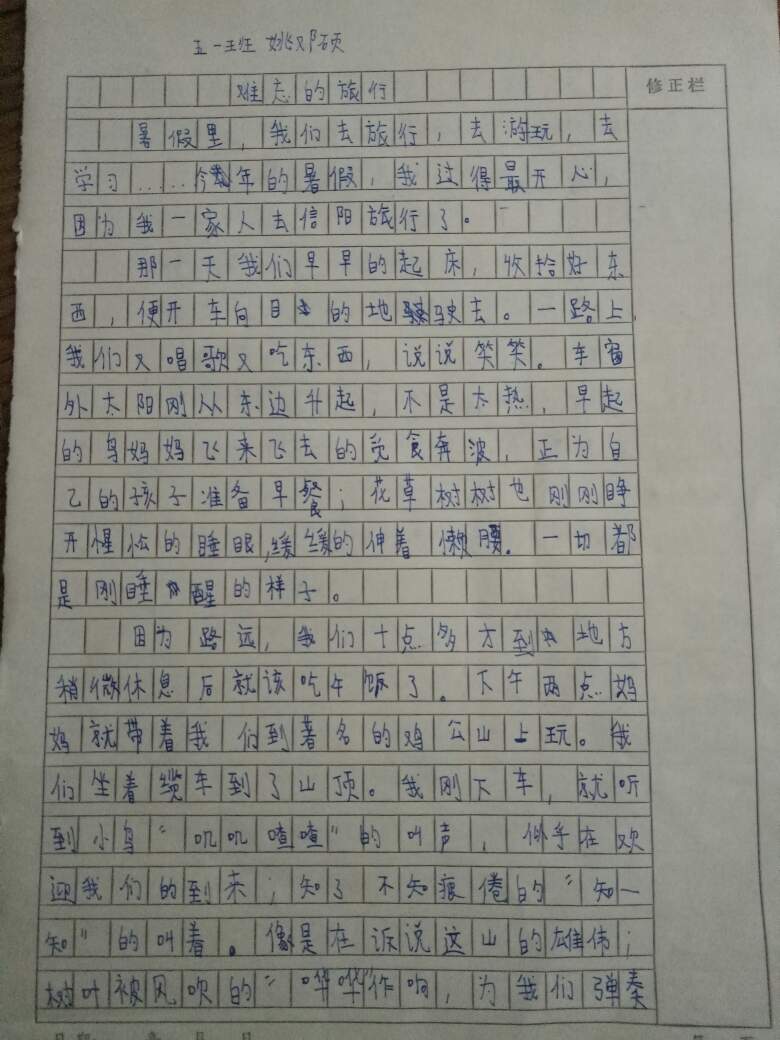 五一班 姚邓硕
难忘的旅行
修正栏
暑假里，我们去旅行，去游玩，去
学习……今年的暑假，我这得最开心，
因为我一家人去信阳旅行了。
那一天我们早早的起床，收拾好东
西，便开车向目的地驶去。一路上，
我们又唱歌又吃东西，说说笑笑。车窗
外太阳刚从东边升起，不是太热，早起
的鸟妈妈飞来飞去的觅食奔波，正为自
己的孩子准备早餐；花草树树也刚刚睁
开惺忪的睡眼，缓缓的伸着懒腰。一切都
是刚睡醒的样子。
因为路远，我们十点多方到地方
稍微休息后就该吃午饭了。下午两点妈
妈就带着我们到著名的鸡公山上玩。我
们坐着缆车到了山顶。我刚下车，就听
到小鸟“叽叽喳喳”的叫声，似乎在欢
迎我们的到来；知了不知疲倦的“知一
知”的叫着。像是在诉说这山的雄伟；
树叶被风吹的“哗哗”作响，为我们弹奏